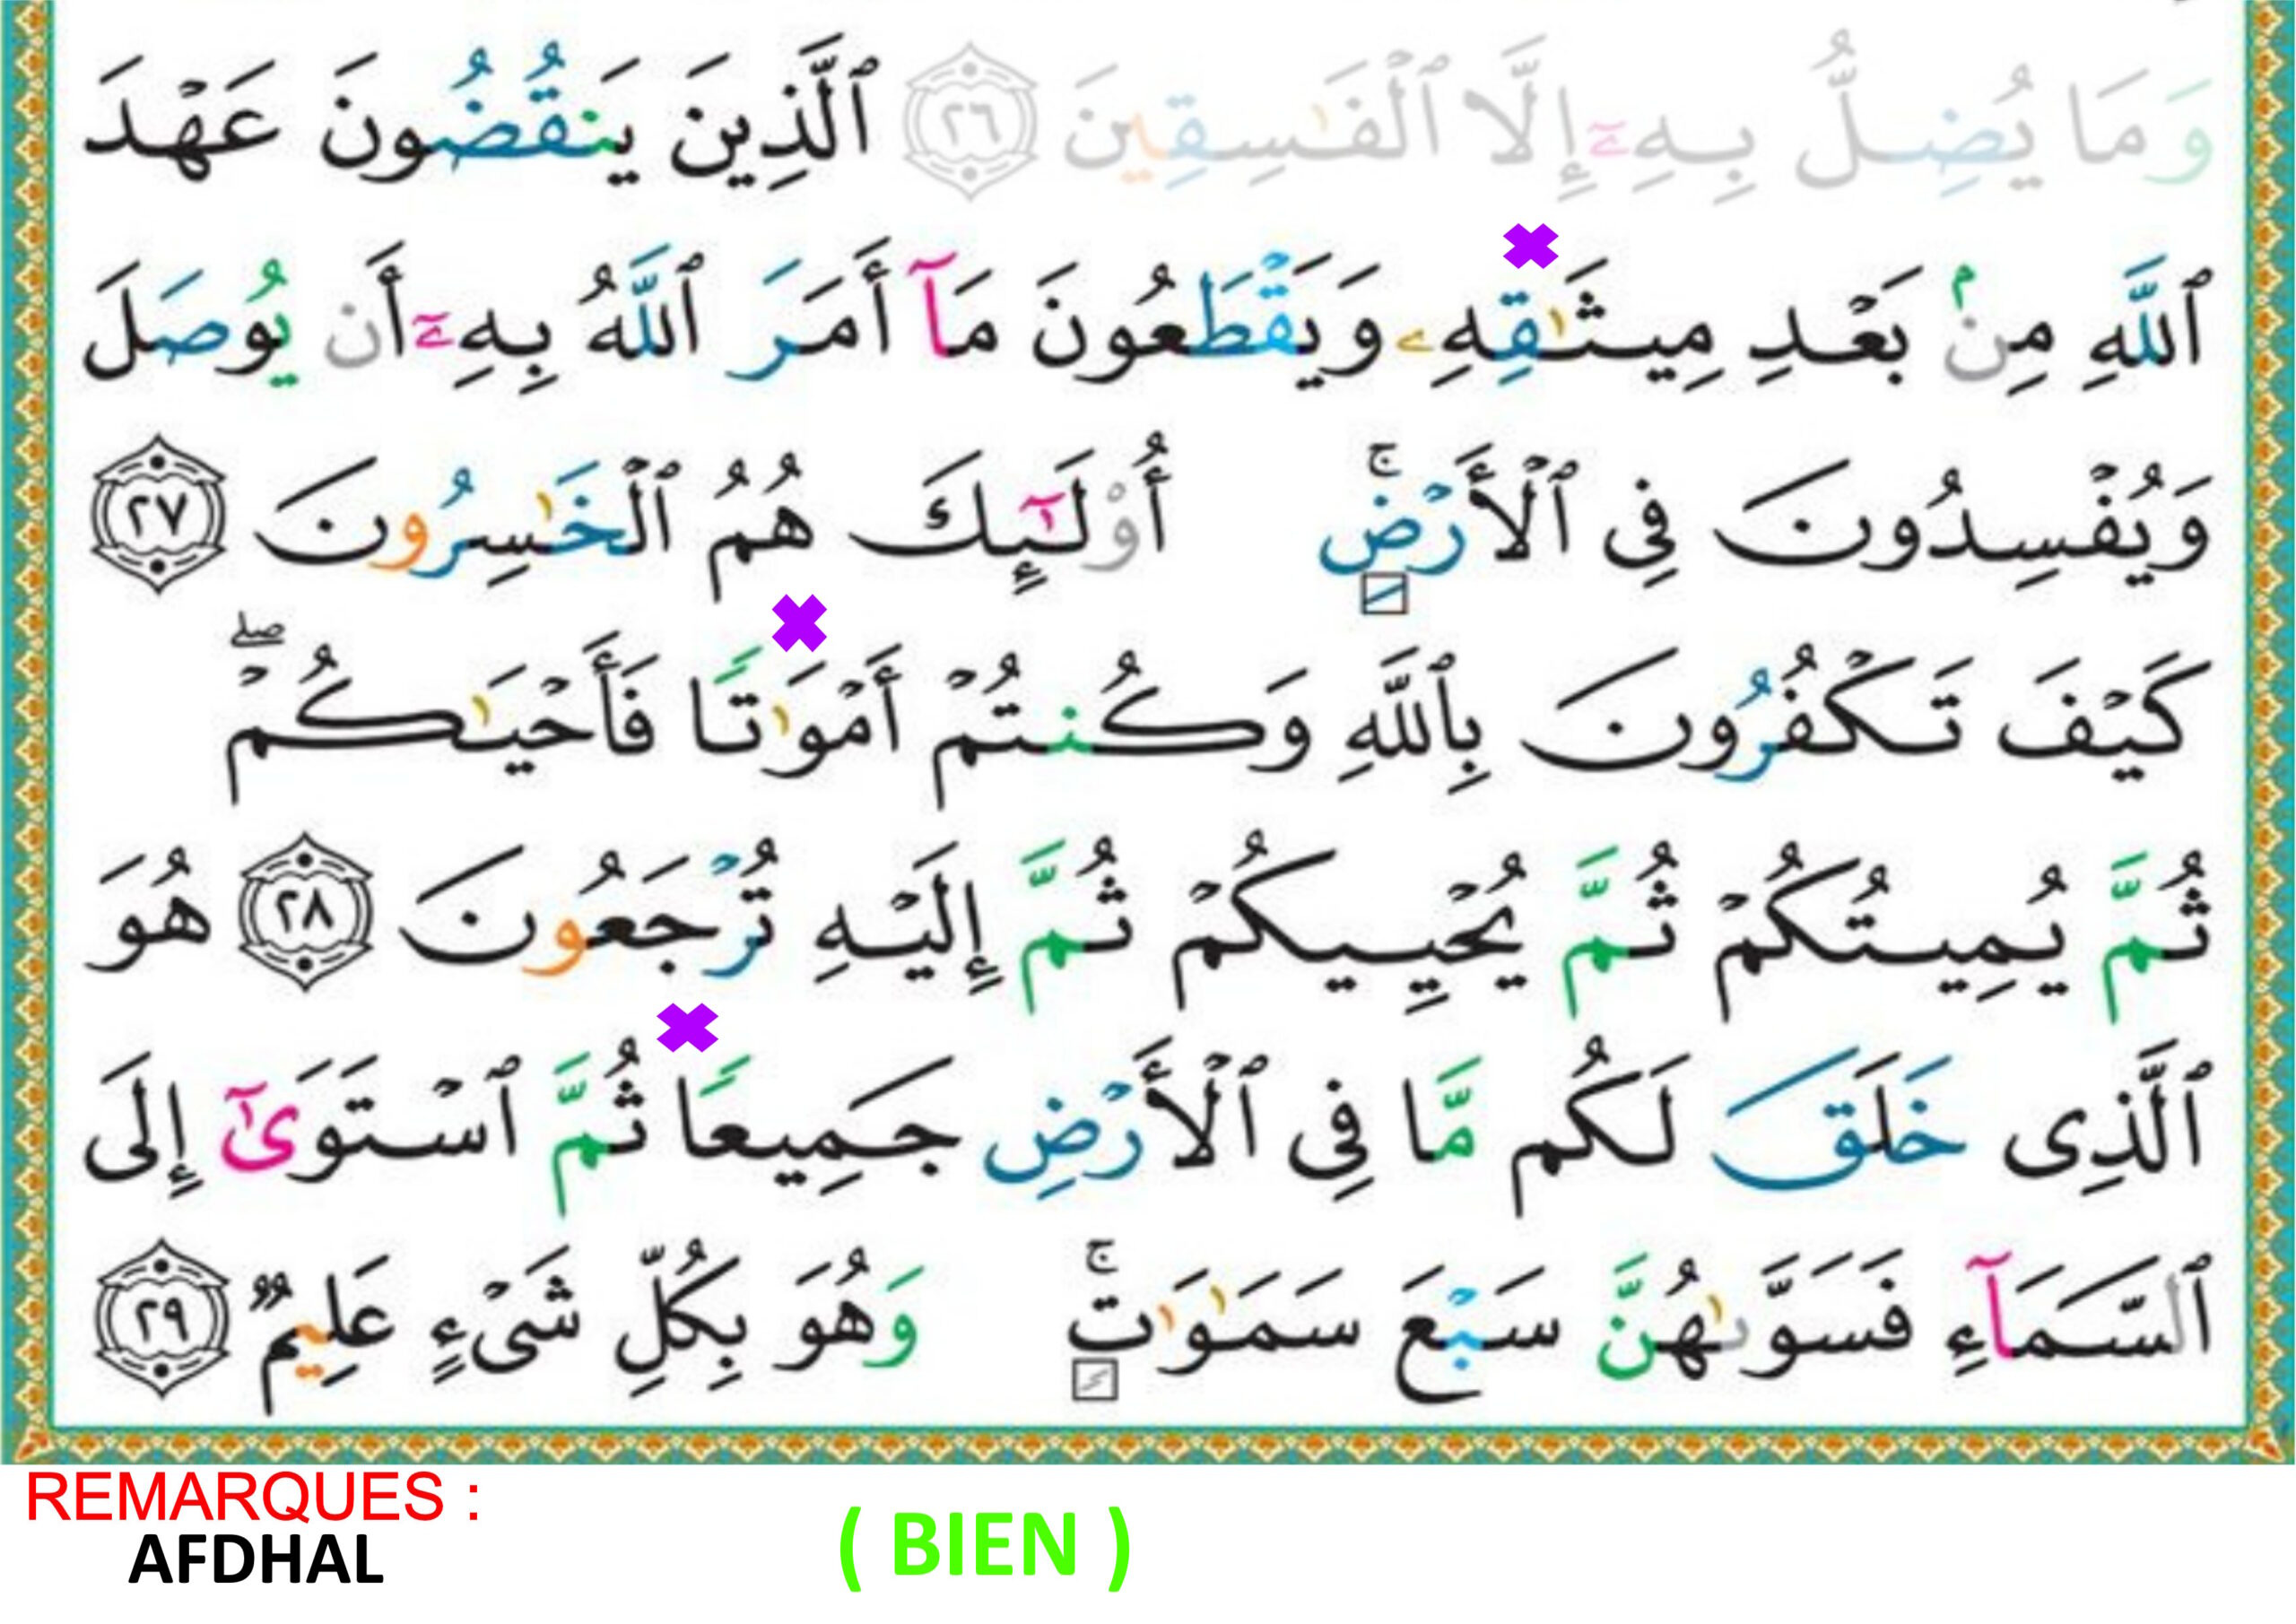 وَمَا يُضِلُّ بِهِۦٓ إِلَّا ٱلْفَٰسِقِينَ ٢٦ ٱلَّذِينَ يَنقُضُونَ عَهْدَ
ٱللَّهِ مِنۢ بَعْدِ مِيثَٰقِهِۦ وَيَقْطَعُونَ مَآ أَمَرَ ٱللَّهُ بِهِۦٓ أَن يُوصَلَ
وَيُفْسِدُونَ فِى ٱلْأَرْضِۚ أُو۟لَٰٓئِكَ هُمُ ٱلْخَٰسِرُونَ ٢٧
كَيْفَ تَكْفُرُونَ بِٱللَّهِ وَكُنتُمْ أَمْوَٰتًا فَأَحْيَٰكُمْۖ
ثُمَّ يُمِيتُكُمْ ثُمَّ يُحْيِيكُمْ ثُمَّ إِلَيْهِ تُرْجَعُونَ ٢٨ هُوَ
ٱلَّذِى خَلَقَ لَكُم مَّا فِى ٱلْأَرْضِ جَمِيعًا ثُمَّ ٱسْتَوَىٰٓ إِلَى
ٱلسَّمَآءِ فَسَوَّىٰهُنَّ سَبْعَ سَمَٰوَٰتٍۚ وَهُوَ بِكُلِّ شَىْءٍ عَلِيمٌ ٢٩
REMARQUES :
AFDHAL
( BIEN )